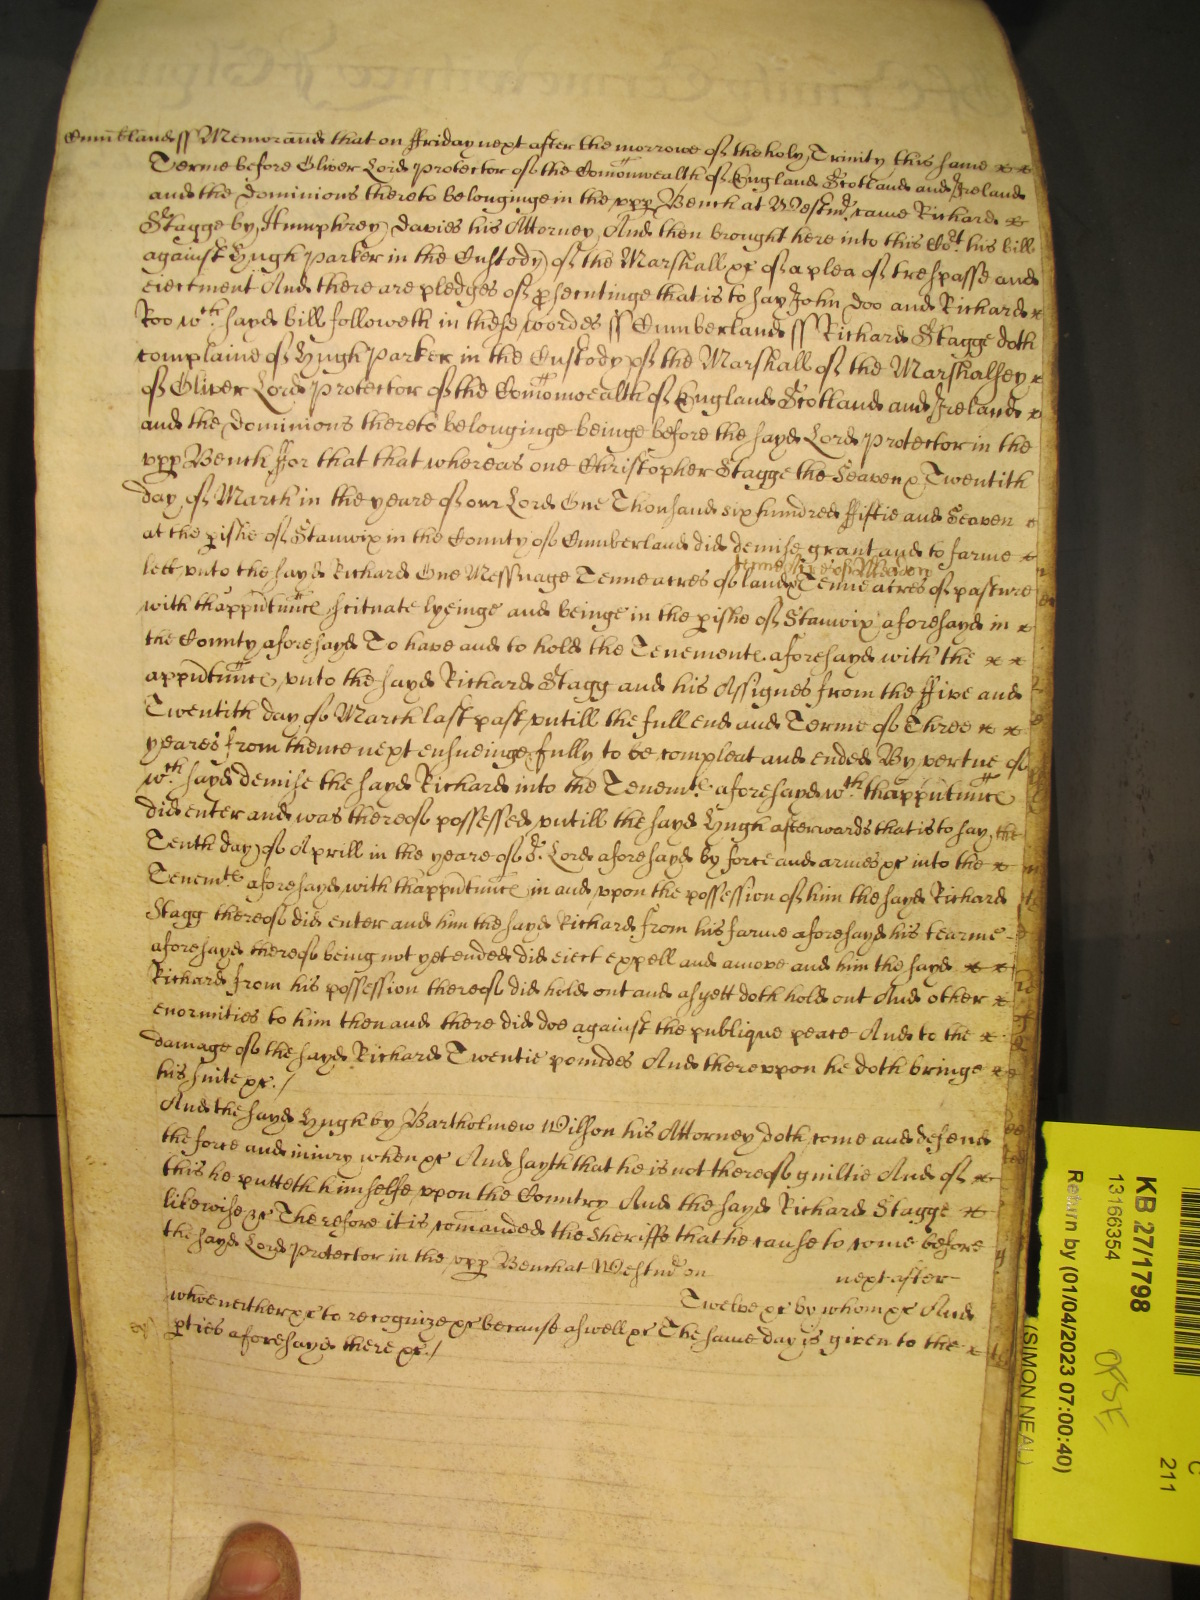 Cumbland ss Memorand that on ffriday next after the morrowe of the holy Trinity this same
Terme before Oliver Lord Protector of the Comonwealth of England Scotland and Ireland
and the Dominions thereto belonginge in the upp Bench at Westmr came Richard
Stagge by Humphrey Davies his Attorney And then brought here into this Cort his bill
against Hugh Parker in the Custody of the Marshall &c of a plea of trespasse and
eiectment And there are pledges of psecutinge that is to say John Doo and Richard
Roo wch sayd bill followeth in these wordes ss Cumberland ss Richard Stagge doth
complaine of Hugh Parker in the Custody of the Marshall of the Marshalsey
of Oliver Lord Protector of the Comonwealth of England Scotland and Ireland
and the Dominions thereto belonginge beinge before the sayd Lord Protector in the
upp Bench ffor that that whereas one Christopher Stagge the Seaven & Twentith
day of March in the yeare of our Lord One Thousand six hundred ffiftie and Seaven
at the pishe of Stanwix in the County of Cumberland did demise grant and to farme
lett unto the sayd Richard One Messuage Tenne acres of land Tenne acres of Meadow & Tenne acres of pasture
with thapputnnce scituate lyeinge and beinge in the pishe of Stanwix aforesayd in
the County aforesayd To have and to hold the Tenemente aforesayd with the
apputnnce unto the sayd Richard Stagg and his Assignes from the ffive and
Twentith day of March last past untill the full end and Terme of Three
yeares from thence next ensueinge fully to be compleat and ended By vertue of
wch sayd demise the sayd Richard into the Tenemte aforesayd wth thapputnnce
did enter and was thereof possessed untill the sayd Hugh afterwards that is to say the
Tenth day of Aprill in the yeare of or Lord aforesayd by force and armes &c into the
Tenemte aforesayd with thapputnnce in and upon the possession of him the sayd Richard
Stagg thereof did enter and him the sayd Richard from his farme aforesayd his tearme
aforesayd thereof being not yet ended did eiect expell and amove and him the sayd
Richard from his possession thereof did hold out and as yett doth hold out And other
enormities to him then and there did doe against the publique peace And to the
damage of the sayd Richard Twentie poundes And thereupon he doth bringe
his suite &c./
And the sayd Hugh by Bartholmew Wilson his Attorney doth come and defend
the force and iniury when &c And sayth that he is not thereof guiltie And of
this he putteth himselfe upon the Country And the sayd Richard Stagge
likewise &c Therefore it is comanded the Sheriffe that he cause to come before
the sayd Lord Protector in the upp Bench at Westmr on next after
Twelve &c by whom &c And
whoe neither &c to recognize &c because aswell &c The same day is given to the
pties aforesayd there &c./
KB 27/1798
13166354
Return by (01/04/2023 07:00:40)
(SIMON NEAL)
C
211